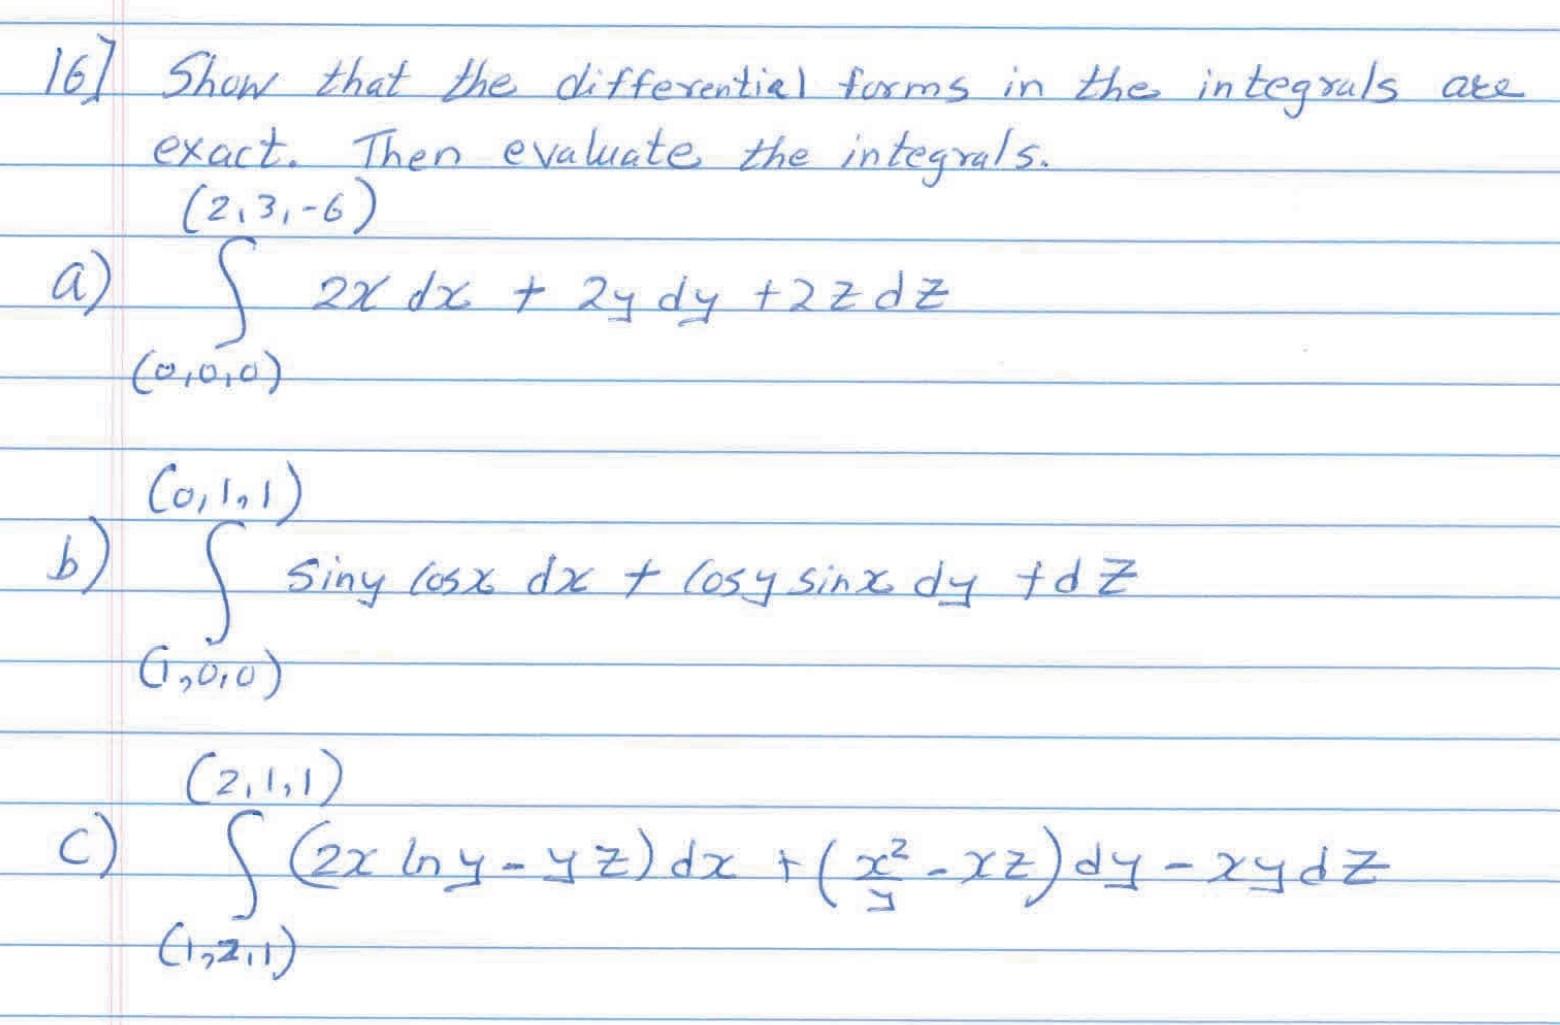 16] Show that the differential forms in the integrals are
exact. Then evaluate the integrals.
(2,3,-6)
a) ∫ 2x dx + 2y dy + 2z dz
(0,0,0)
(0,1,1)
b) ∫ siny cosx dx + cosy sinx dy + dz
(1,0,0)
(2,1,1)
c) ∫ (2x ln y - yz) dx + (x²/y - xz) dy - xy dz
(1,2,1)